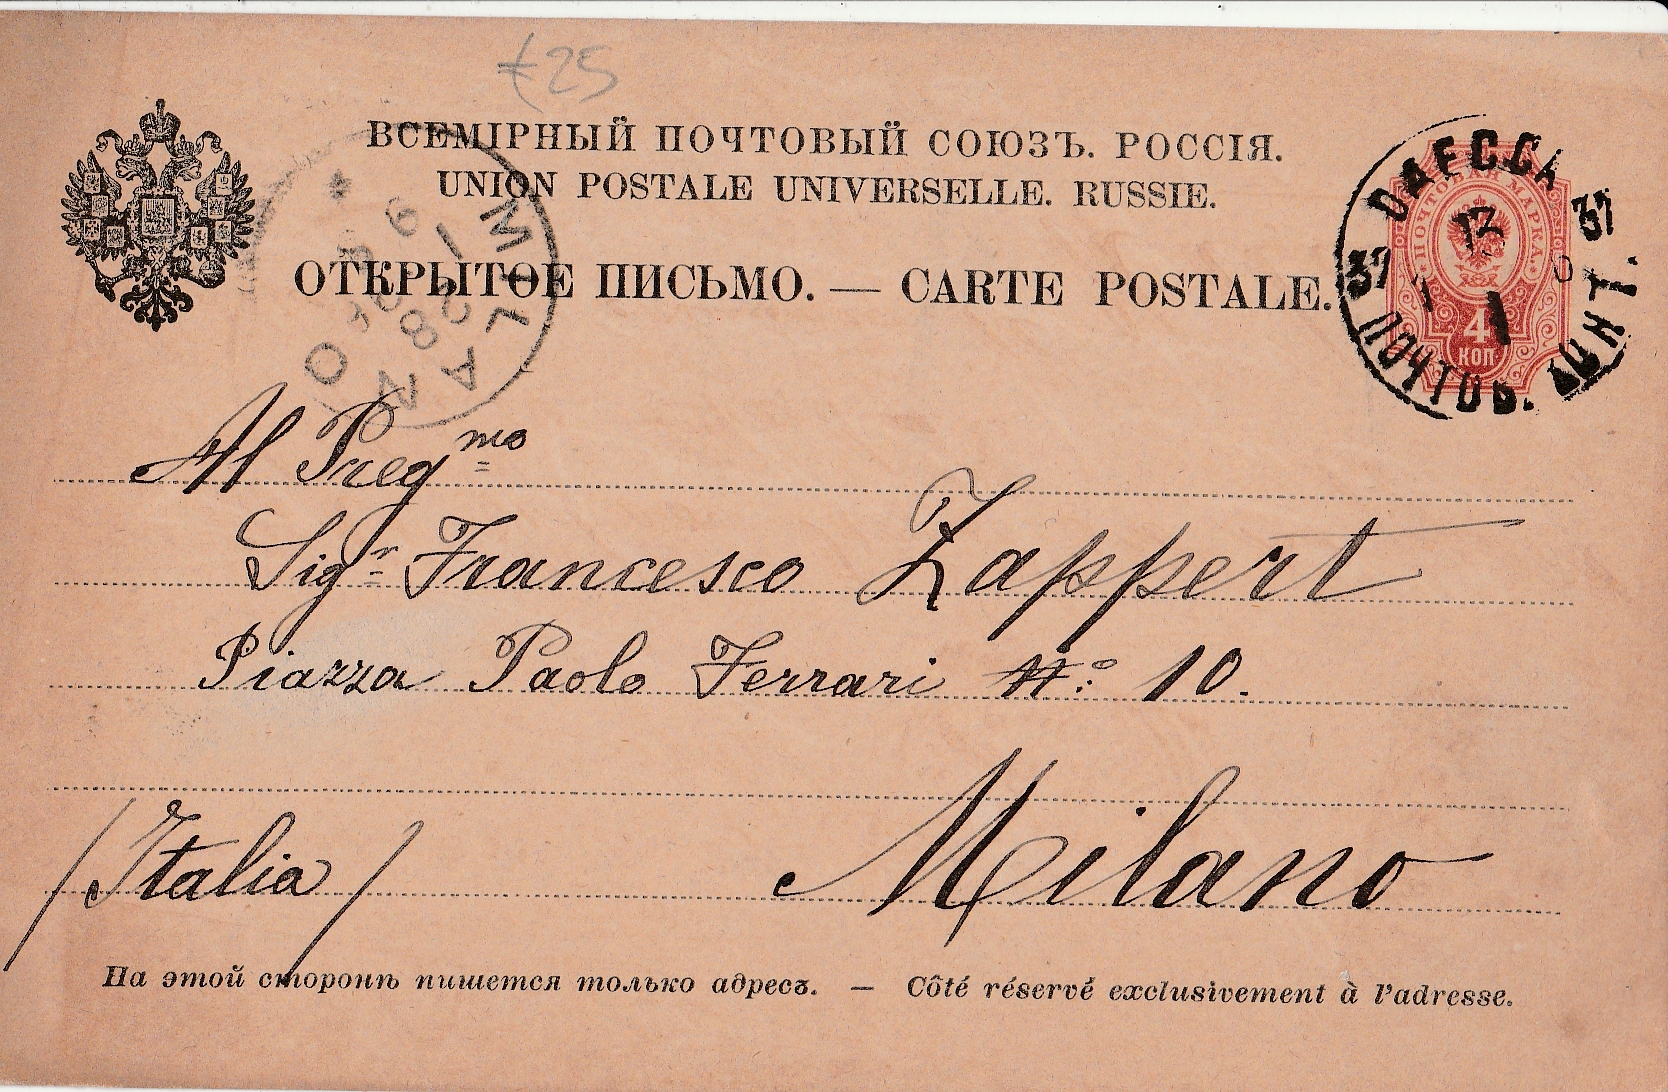 £25
ВСЕМІРНЫЙ ПОЧТОВЫЙ СОЮЗЪ. РОССІЯ.
UNION POSTALE UNIVERSELLE. RUSSIE.
ОТКРЫТОЕ ПИСЬМО. — CARTE POSTALE.
MILANO
ОДЕССА
37 37
13
ПОЧТОВ.
ПОЧТОВАЯ МАРКА
4
КОП
Al Preg^mo
Sig^r Francesco Zappert
Piazza Paolo Ferrari N.° 10.
/Italia/ Milano
На этой сторонѣ пишется только адресъ. — Côté réservé exclusivement à l'adresse.